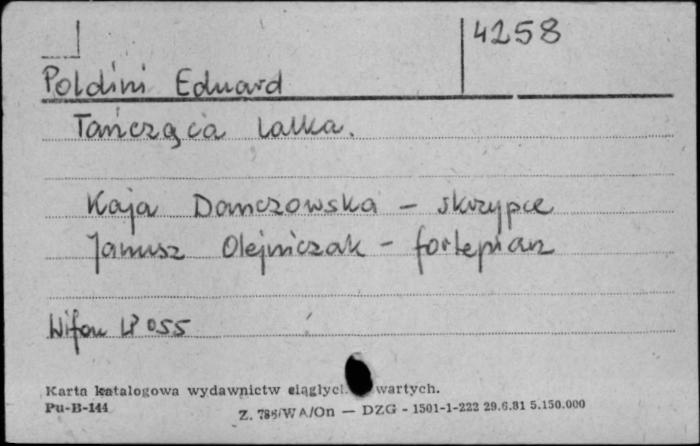 4258
Poldini Eduard
Tańcząca lalka.
Kaja Danczowska – skrzypce
Janusz Olejniczak – fortepian
Wifon LP 055
Karta katalogowa wydawnictw ciągłyc wartych.
Pu-B-144
Z. 786/WA/On — DZG - 1501-1-222 29.6.81 5.150.000